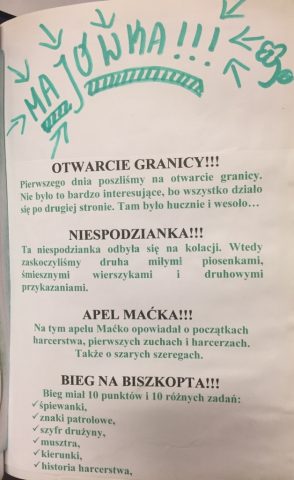 MAJÓWKA!!!
OTWARCIE GRANICY!!!
Pierwszego dnia poszliśmy na otwarcie granicy.
Nie było to bardzo interesujące, bo wszystko działo
się po drugiej stronie. Tam było hucznie i wesoło…
NIESPODZIANKA!!!
Ta niespodzianka odbyła się na kolacji. Wtedy
zaskoczyliśmy druha miłymi piosenkami,
śmiesznymi wierszykami i druhowymi
przykazaniami.
APEL MAĆKA!!!
Na tym apelu Maćko opowiadał o początkach
harcerstwa, pierwszych zuchach i harcerzach.
Także o szarych szeregach.
BIEG NA BISZKOPTA!!!
Bieg miał 10 punktów i 10 różnych zadań:
✓śpiewanki,
✓znaki patrolowe,
✓szyfr drużyny,
✓musztra,
✓kierunki,
✓historia harcerstwa,